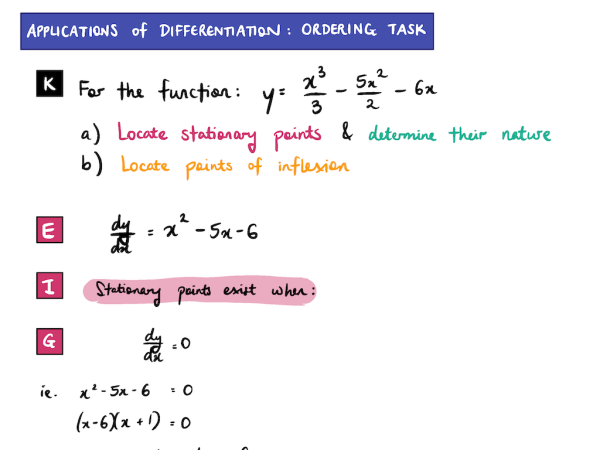 APPLICATIONS of DIFFERENTIATION : ORDERING TASK
K For the function: y = x³/3 - 5x²/2 - 6x
a) Locate stationary points & determine their nature
b) Locate points of inflexion
E dy/dx = x² - 5x - 6
I Stationary points exist when:
G dy/dx = 0
ie. x² - 5x - 6 = 0
(x-6)(x+1) = 0